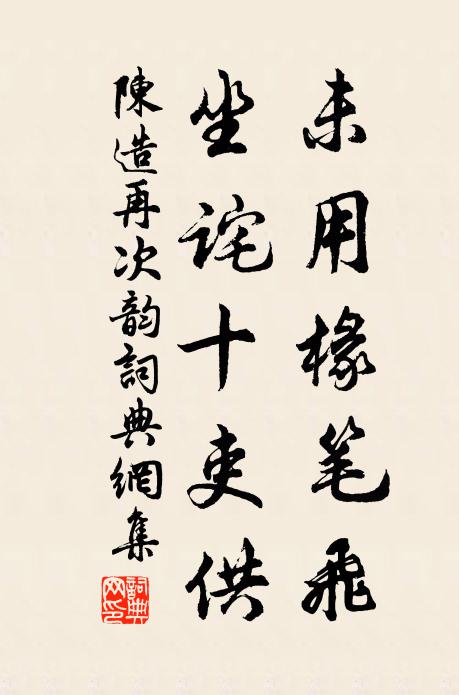 未用椽笔飛
坐詫十吏供
陳造再次韵詞典網集
詞典网印